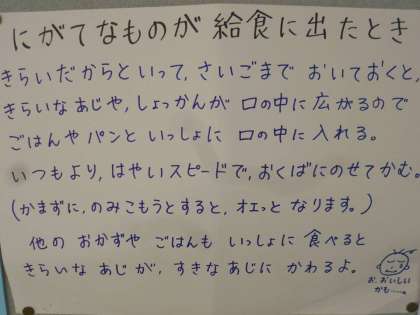 にがてなものが 給食に出たとき
きらいだからといって,さいごまで おいておくと,
きらいなあじや,しょっかんが 口の中に広がるので
ごはんやパンと いっしょに 口の中に入れる。
いつもより,はやいスピードで,おくばにのせてかむ。
(かまずに,のみこもうとすると,オエッと なります。)
他の おかずや ごはんも いっしょに 食べると
きらいな あじが,すきなあじに かわるよ。
お,おいしい
かも〜。